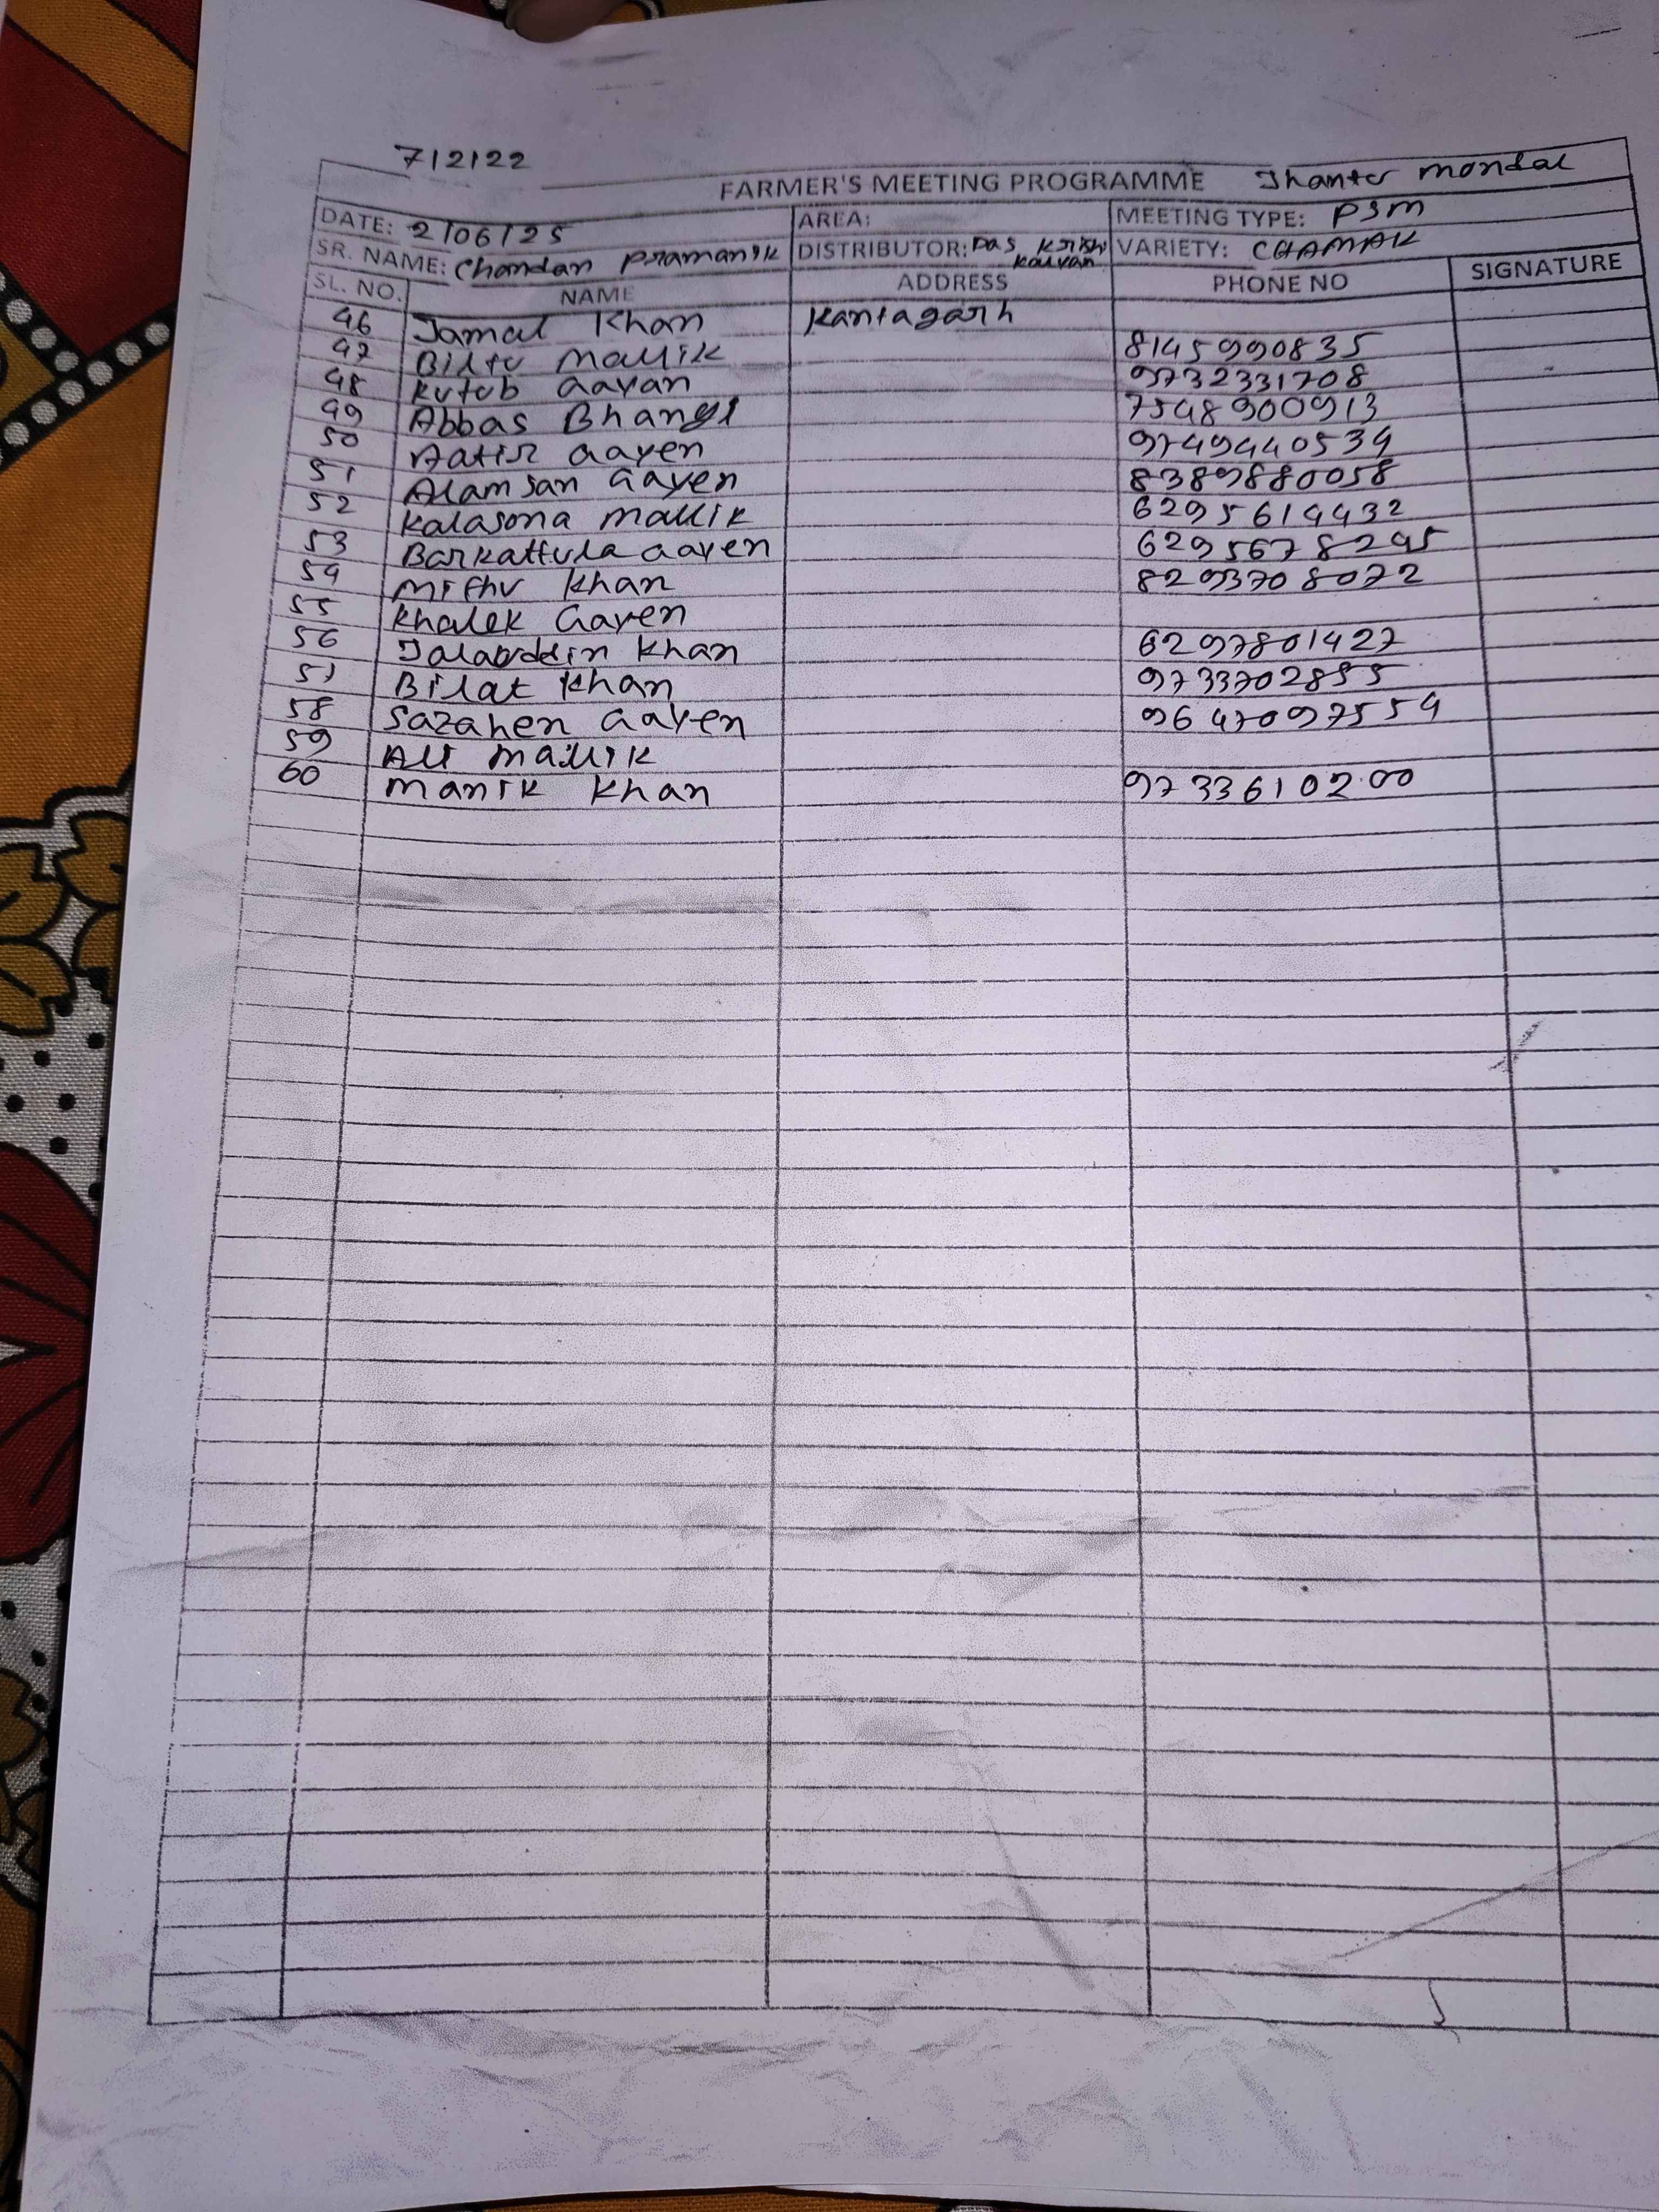 712122
FARMER'S MEETING PROGRAMME Jhantu mondal
DATE: 2/06/25 AREA: MEETING TYPE: PSM
SR. NAME: Chandan Pramanik DISTRIBUTOR: Das Krishi Kalyan VARIETY: CHAMAK
SL. NO. NAME ADDRESS PHONE NO SIGNATURE
46 Jamal Khan Kantagarh
47 Biltu Mallik 8145990835
48 Kutub Gayan 9732331708
49 Abbas Bhangi 7548900913
50 Gayen 9749440534
51 Alamsan Gayen 8389880058
52 Kalasona Mallik 6295614432
53 Barkattula Gayen 6295678245
54 Mithu Khan 8293708072
55 Khalek Gayen
56 Jalauddin Khan 6297801427
57 Bilat Khan 9733702855
58 Sazahen Gayen 9647097554
59 Ali Mallik
60 Manik Khan 9733610200